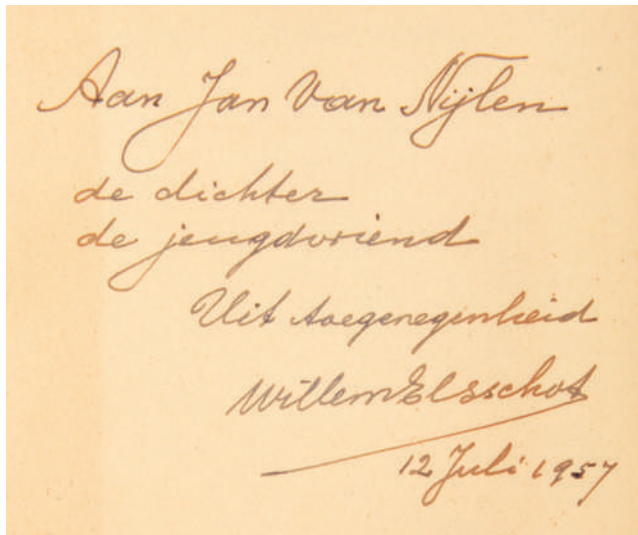 Aan Jan Van Nijlen
de dichter
de jeugdvriend
Uit toegenegenheid
Willem Elsschot
12 Juli 1957